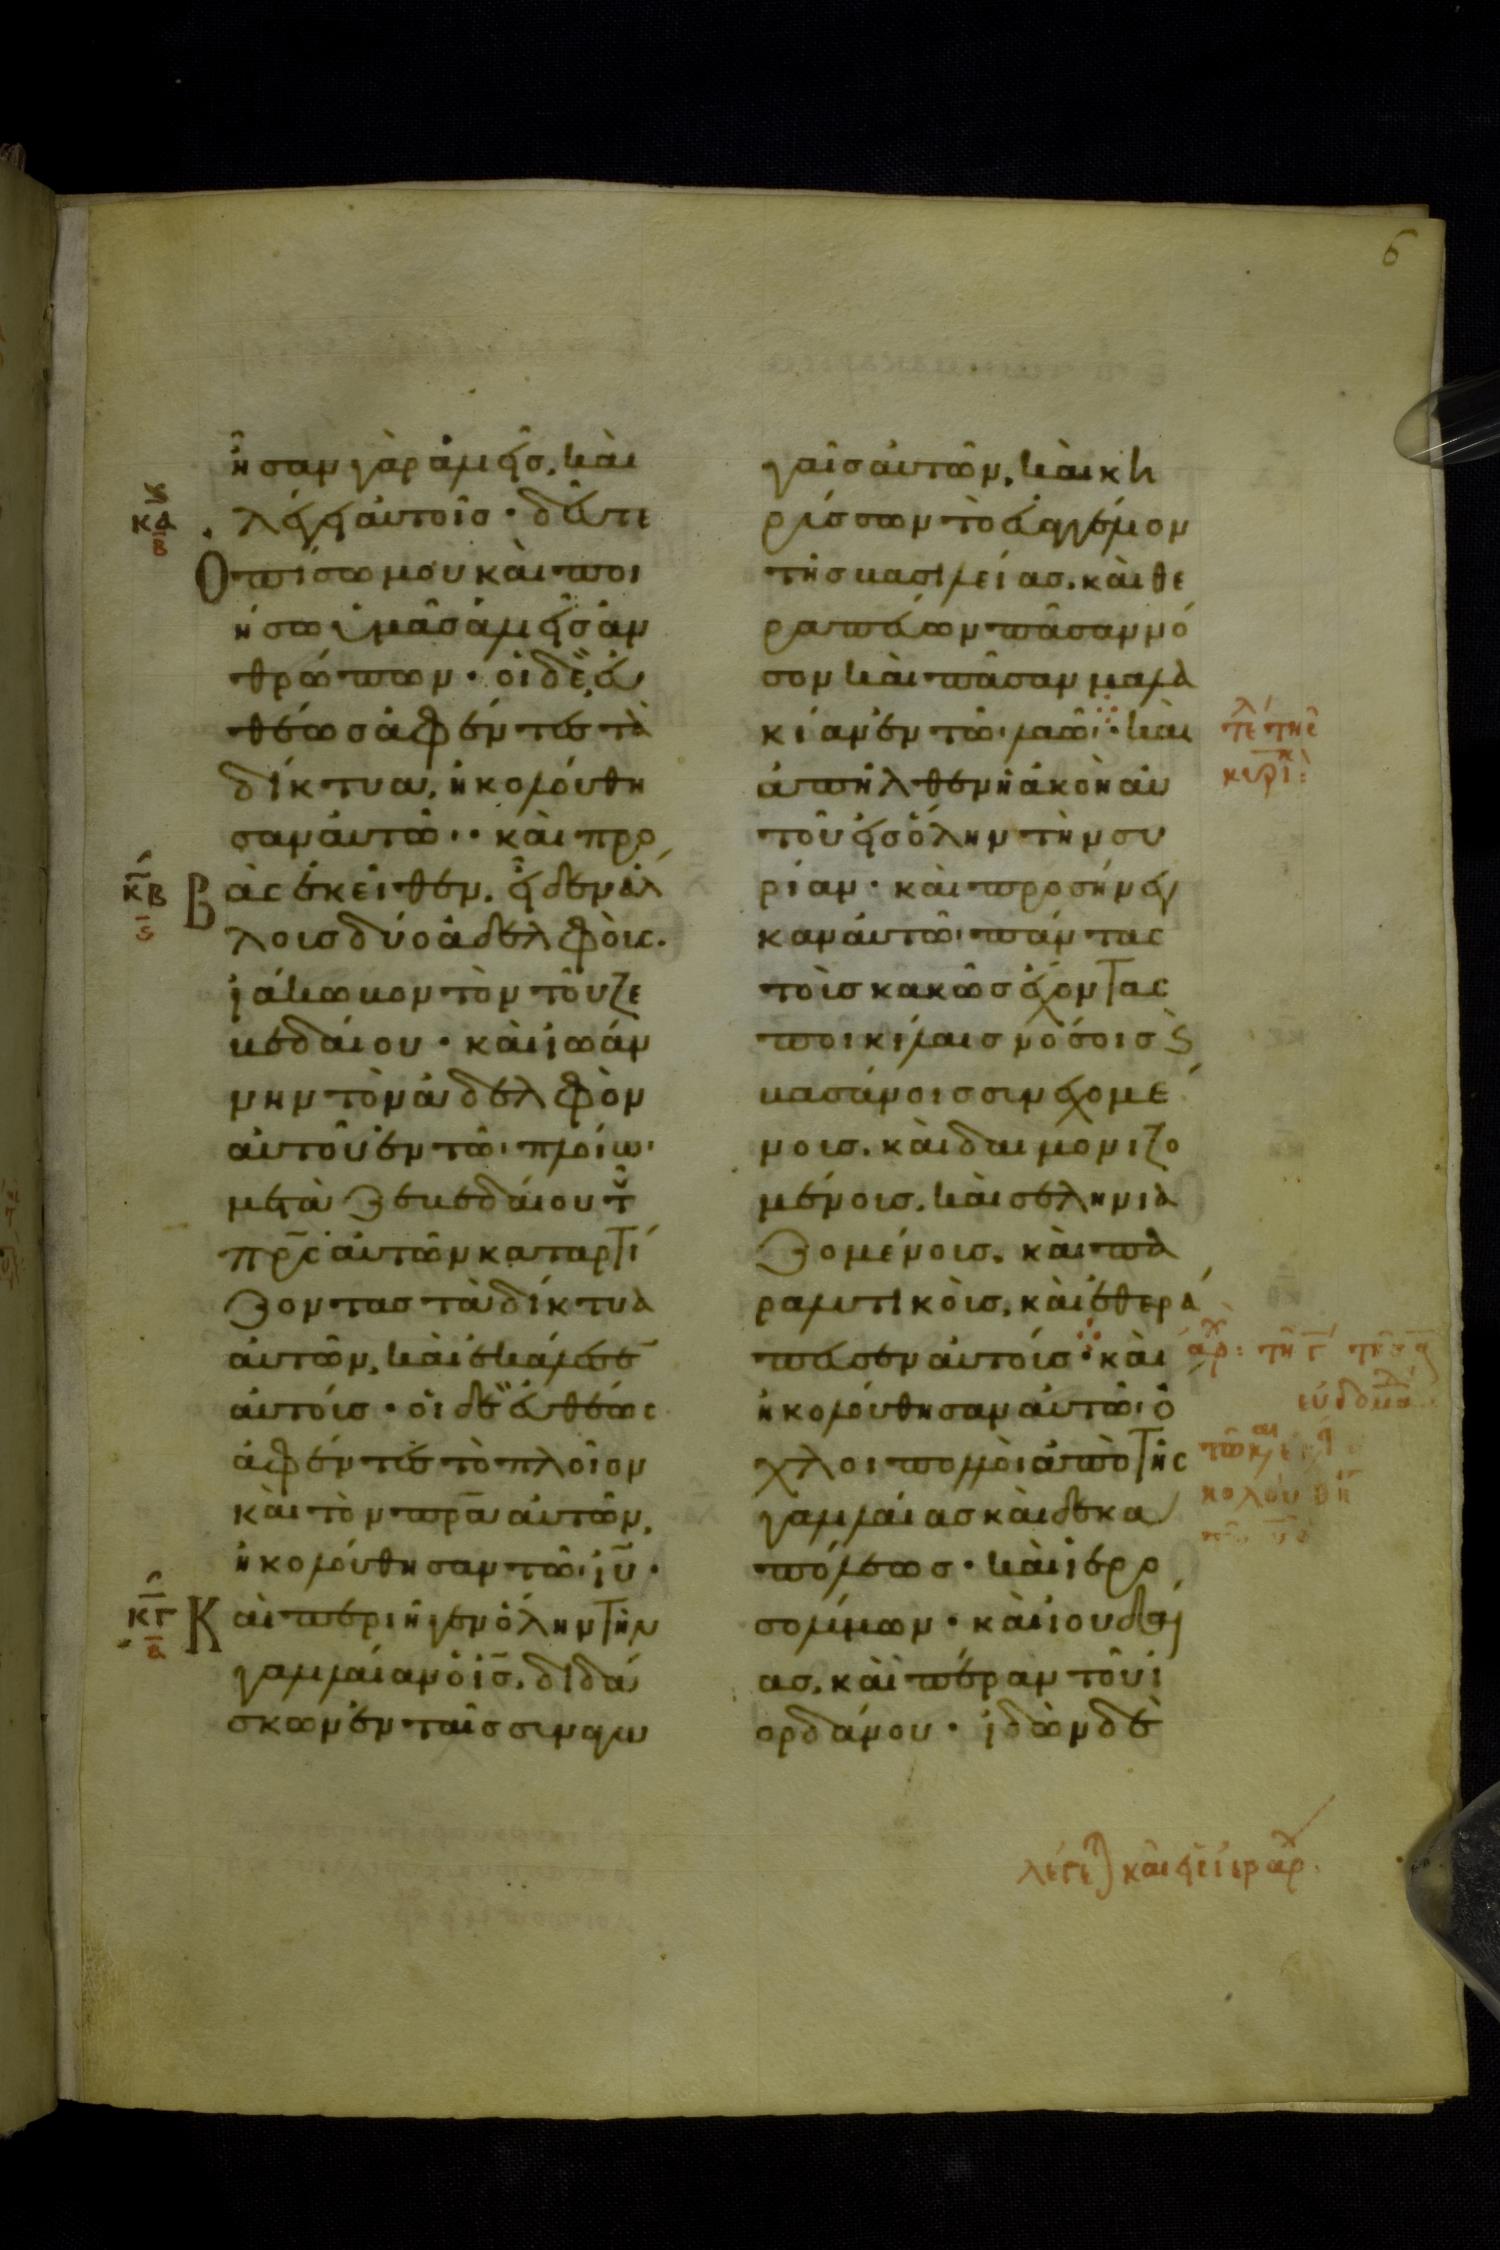 6
ἦσαν γὰρ ἁλιεῖσ, καὶ
λέγει αὐτοῖσ · δεῦτε
Ὀπίσω μου καὶ ποι
ήσω ὑμᾶσ ἁλιεῖσ ἀν
θρώπων · οἱ δὲ εὐ
θέωσ ἀφέντες τὰ
δίκτυα, ἠκολούθη
σαν αὐτῶ · καὶ προ
Βὰς ἐκεῖθεν, εἶδεν ἀλ
λουσ δύο ἀδελφοὺς.
ἰάκωβον τὸν τοῦ ζε
βεδαίου · καὶ ἰωάν
νην τὸν ἀδελφὸν
αὐτοῦ ἐν τῶ πλοίω
μετὰ Ζεβεδαίου τοῦ
πρ̅ς αὐτῶν καταρτί
ζοντασ τὰ δίκτυα
αὐτῶν, καὶ ἐκάλεσεν
αὐτούσ · οἱ δὲ εὐθέως
ἀφέντες τὸ πλοῖον
καὶ τὸν πρ̅α αὐτῶν,
ἠκολούθησαν τῶ ιυ̅ ·
Καὶ περιῆγεν ὅλην τὴν
γαλιλαίαν ὁ ισ̅, διδά
σκων ἐν ταῖσ συναγω
γαῖσ αὐτῶν, καὶ κη
ρύσσων τὸ εὐαγγέλιον
τῆσ βασιλείασ. καὶ θε
ραπεύων πᾶσαν νό
σον καὶ πᾶσαν μαλα
κίαν ἐν τῶ λαῶ · καὶ
ἀπῆλθεν ἡ ἀκοὴ αὐ
τοῦ εἰσ ὅλην τὴν συ
ρίαν · καὶ προσήνεγ
καν αὐτῶ πάντας
τοὺσ κακῶσ ἔχοντας
ποικίλαισ νόσοισ ϗ
βασάνοισ συνεχομέ
νουσ. καὶ δαιμονιζο
μένουσ, καὶ σεληνια
ζομένουσ. καὶ πα
ραλυτικοὺσ, καὶ ἐθερά
πευσεν αὐτούσ · καὶ
ἠκολούθησαν αὐτῶ ὄ
χλοι πολλοὶ ἀπὸ τῆς
γαλιλαίασ καὶ δεκα
πόλεωσ · καὶ ἱερο
σολύμων · καὶ ἰουδαί
ασ. καὶ πέραν τοῦ ἰ
ορδάνου · ἰδὼν δὲ
κα̅
β̅
κ̅β
ς̅
κ̅γ
α̅